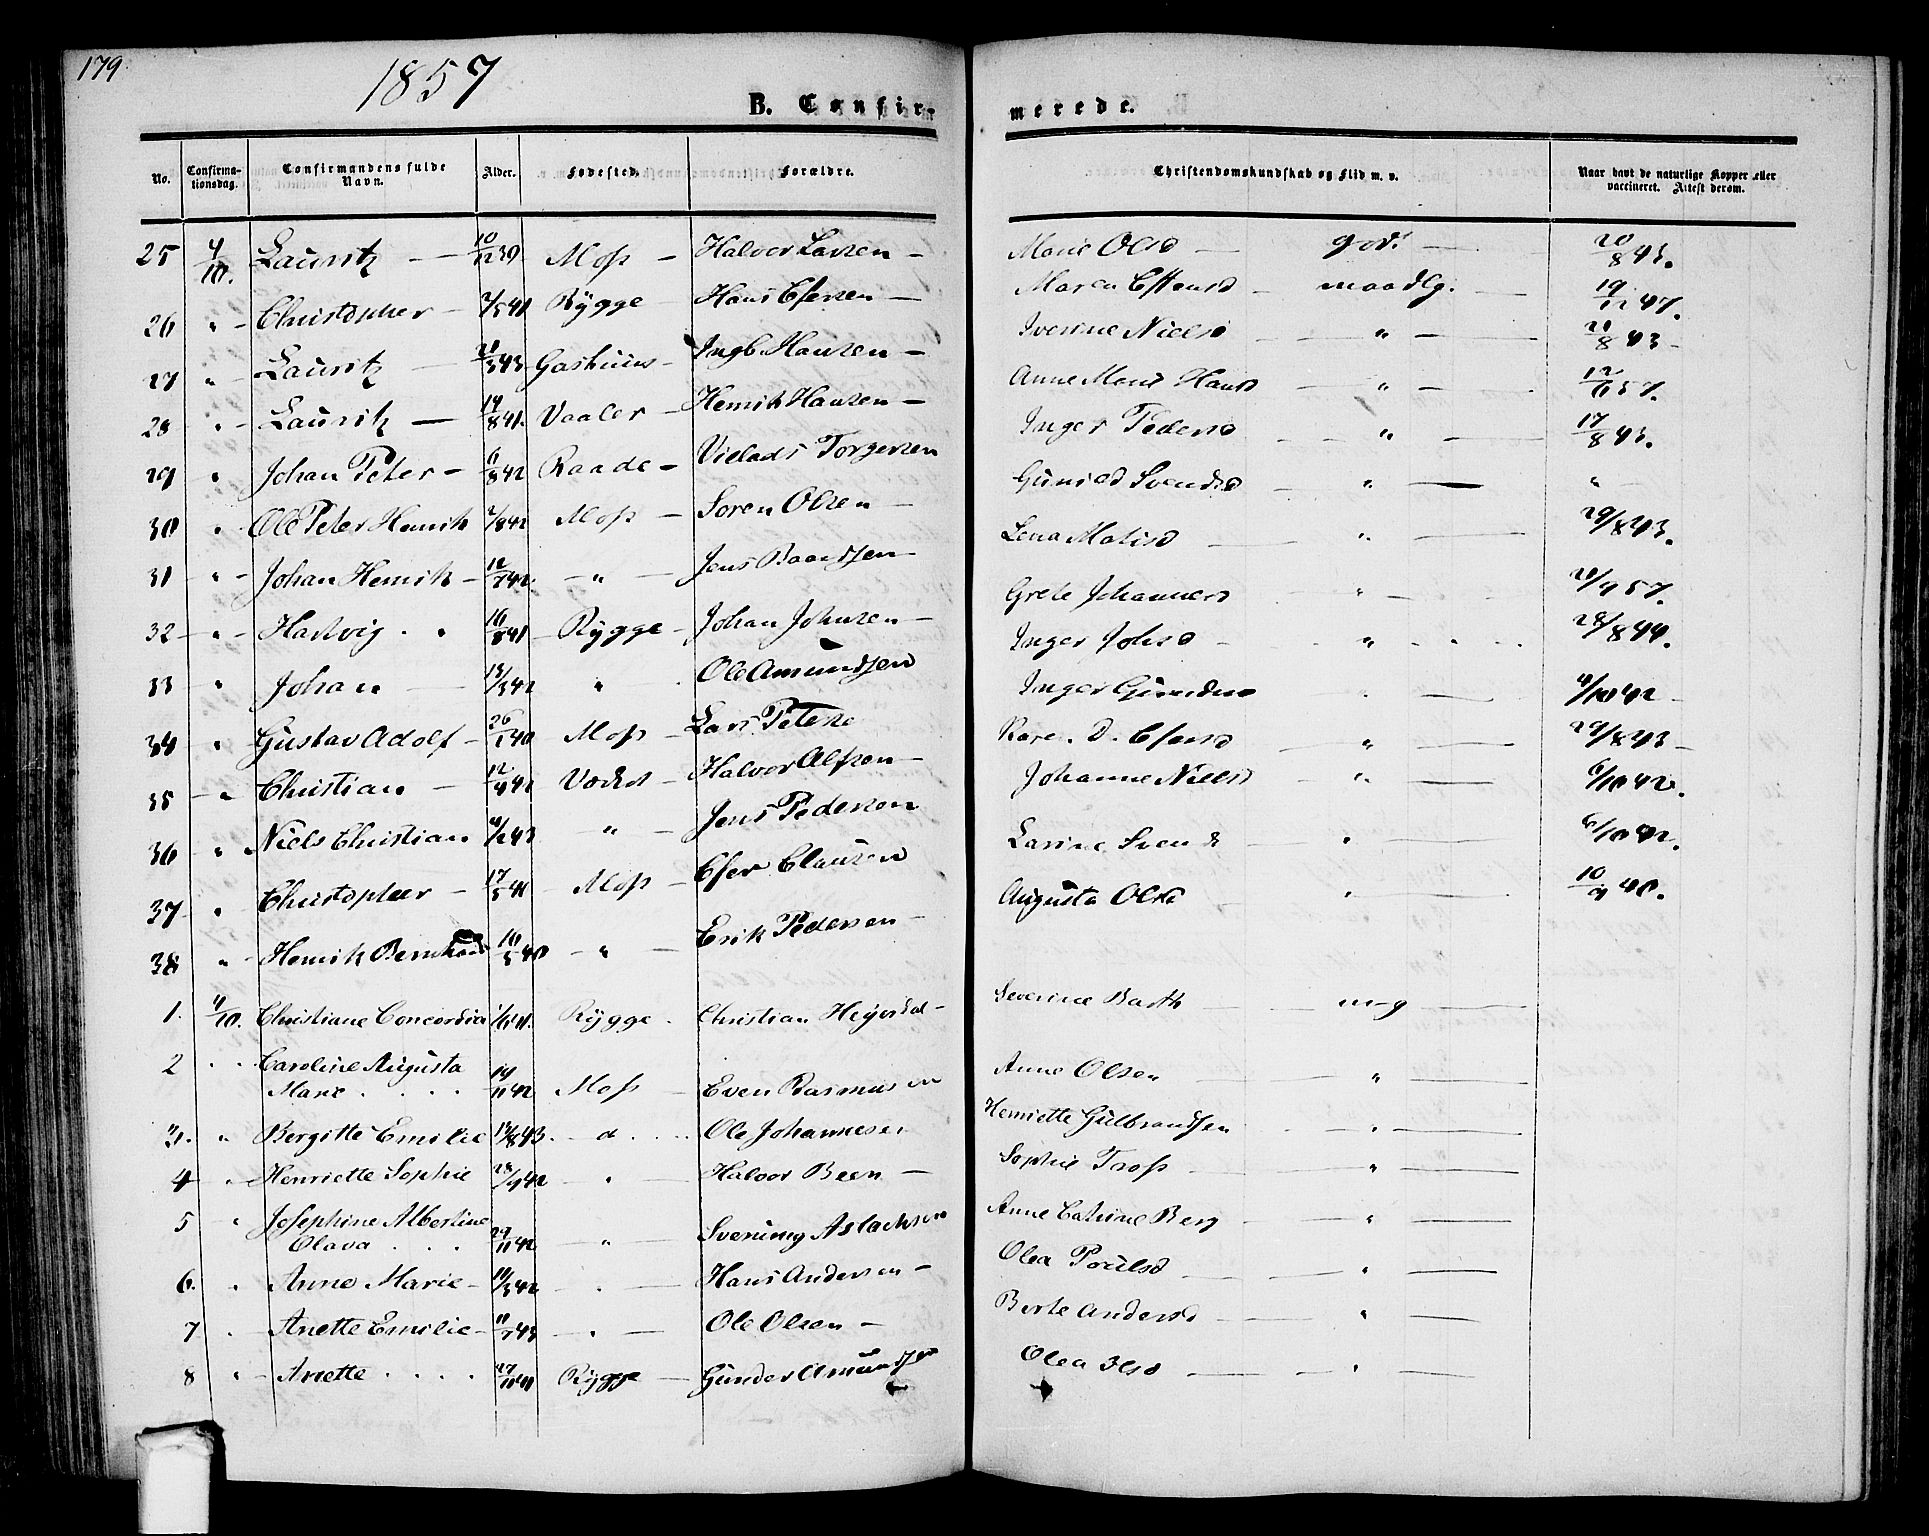 179
1857
B. Confirmerede.
No. Confirmationsdag. Confirmandens fulde Navn. Alder. Fødested. Forældre. Christendomskundskab og Flid m. v. Naar havt de naturlige Kopper eller vaccineret. Attest derom.
25 4/10. Lauritz — 10/12 39 Moss — Halvor Larsen — Marie Olsd — god. — 20/8 43.
26 " Christopher — 2/5 41 Rygge — Hans Esersen — Maren — maadlg. — 19/11 47.
27 " Lauritz — 21/3 43 Gashuus — Ingb. Hansen — Iverine Nielsd — " — 20/8 43 —
28 " Lauritz — 14/8 41. Vaaler — Henrik Hansen — Anne Marie Hansd — " — 12/6 57.
29 " Johan Peter — 11/8 42 Raade — Torgersen Inger Pedersd — " — 17/8 43.
30 " Ole Peter Henrik 2/8 42 Moss — Soren Olsen — Gunild Svendsd — " — "
31 " Johan Henrik — 12/7 42. — " — Jens Baardsen — Lena Matisd — " — 29/8 43.
32 — " — Hartvig . . 16/8 41 — Rygge — Johan Johnsen — Grete Johannesd — " — 20/9 57.
33 " Johan — 13/3 42 " Ole Amundsen Inger Johsd — " — 28/8 44.
34 " Gustav Adolf — 26/1 40 Moss — Lars Peterse Inger — 4/10 42 —
35 — " Christian — 12/4 42 — Halvor Alfsen — Karen D. — " — 29/8 43 —
36 " Niels Christian 11/2 43 " — Jens Pedersen Johanne Nielsd — " 6/10 42.
37 " Christopher — 17/5 41 — Moss — Eser Clausen Larine Svend — " — 6/10 42.
38 " Henrik Bernhard 10/5 40 — " — Erik Pedersen — Augusta Olse — " — 10/9 40.
1. 4/10. Christiane Concordia 1/6 41. Rygge. Christian — Severine Barth — m-g —
2 " Caroline Augusta
Marie . . . . 14/11 42 Moss — Even Rasmussen Anne Olsen — " —
3. " Bergitte Emilie 13/8 43. — d . . . . Ole Johannesen Henriette Gulbrandsen — " —
4 " Henriette Sophie 28/9 42 — " Halvor Been — Sophie Tross — " —
5 " Josephine Albertine
Olava . . . 29/11 42 " — Aslachsen Anne Catrine Berg — " —
6. " Anne Marie — 10/3 42 . — Hans Andersen — Olea Poulsd — " —
7 " Anette Emilie — 11/7 43 — " — Ole Olsen — Berte Andersd — " —
8 " — Anette . . . . 27/11 41 Rygge — Gunder Amundsen Olea Olsd — " —